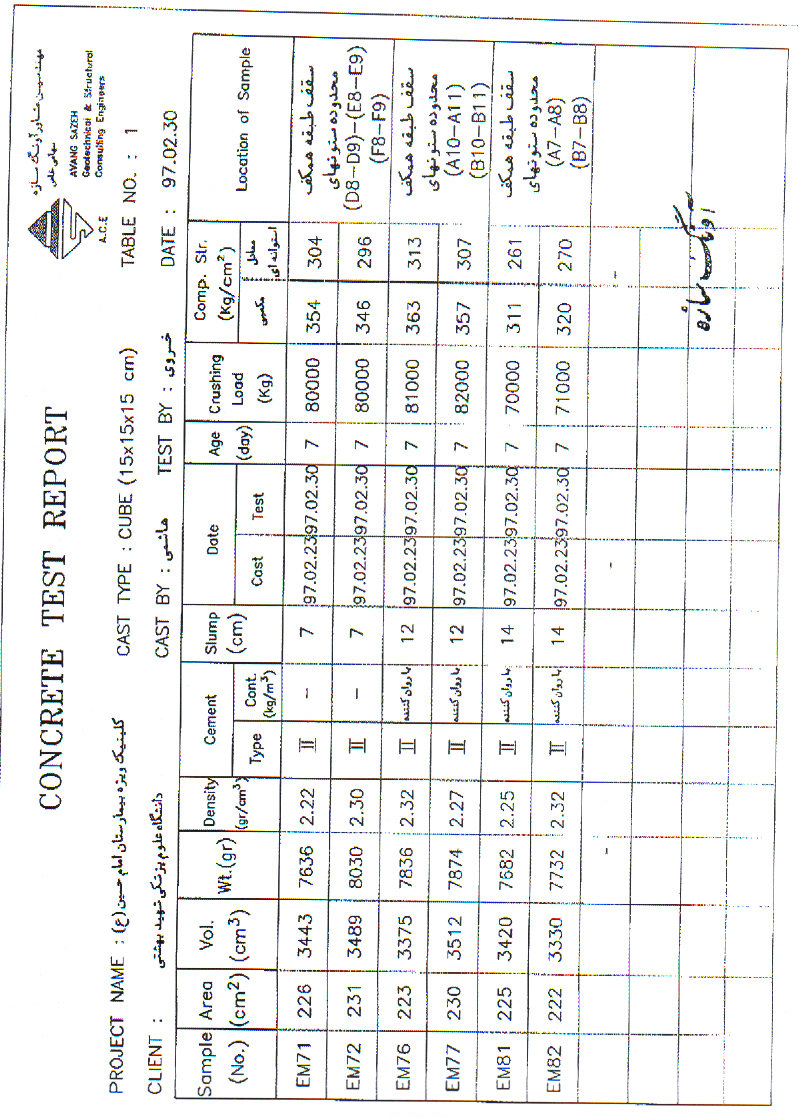 CONCRETE TEST REPORT
مهندسین مشاور آونگ سازه
سهامی خاص
AVANG SAZEH
Geotechnical & Structural
Consulting Engineers
A.C.E
PROJECT NAME : کلینیک ویژه بیمارستان امام حسین (ع) CAST TYPE : CUBE (15x15x15 cm) TABLE NO. : 1
CLIENT : دانشگاه علوم پزشکی شهید بهشتی CAST BY : هاشمی TEST BY : خروی DATE : 97.02.30
Sample (No.) Area (cm²) Vol. (cm³) Wt.(gr) Density (gr/cm³) Cement Type Cont. (kg/m³) Slump (cm) Date Cast Test Age (day) Crushing Load (Kg) Comp. Str. (Kg/cm²) مکعبی معادل استوانه ای Location of Sample
EM71 226 3443 7636 2.22 II – 7 97.02.23 97.02.30 7 80000 354 304
EM72 231 3489 8030 2.30 II – 7 97.02.23 97.02.30 7 80000 346 296
سقف طبقه همکف
محدوده ستونهای
(D8–D9)–(E8–E9)
(F8–F9)
EM76 223 3375 7836 2.32 II باروان کننده 12 97.02.23 97.02.30 7 81000 363 313
EM77 230 3512 7874 2.27 II باروان کننده 12 97.02.23 97.02.30 7 82000 357 307
سقف طبقه همکف
محدوده ستونهای
(A10–A11)
(B10–B11)
EM81 225 3420 7682 2.25 II باروان کننده 14 97.02.23 97.02.30 7 70000 311 261
EM82 222 3330 7732 2.32 II باروان کننده 14 97.02.23 97.02.30 7 71000 320 270
سقف طبقه همکف
محدوده ستونهای
(A7–A8)
(B7–B8)
آونگ سازه